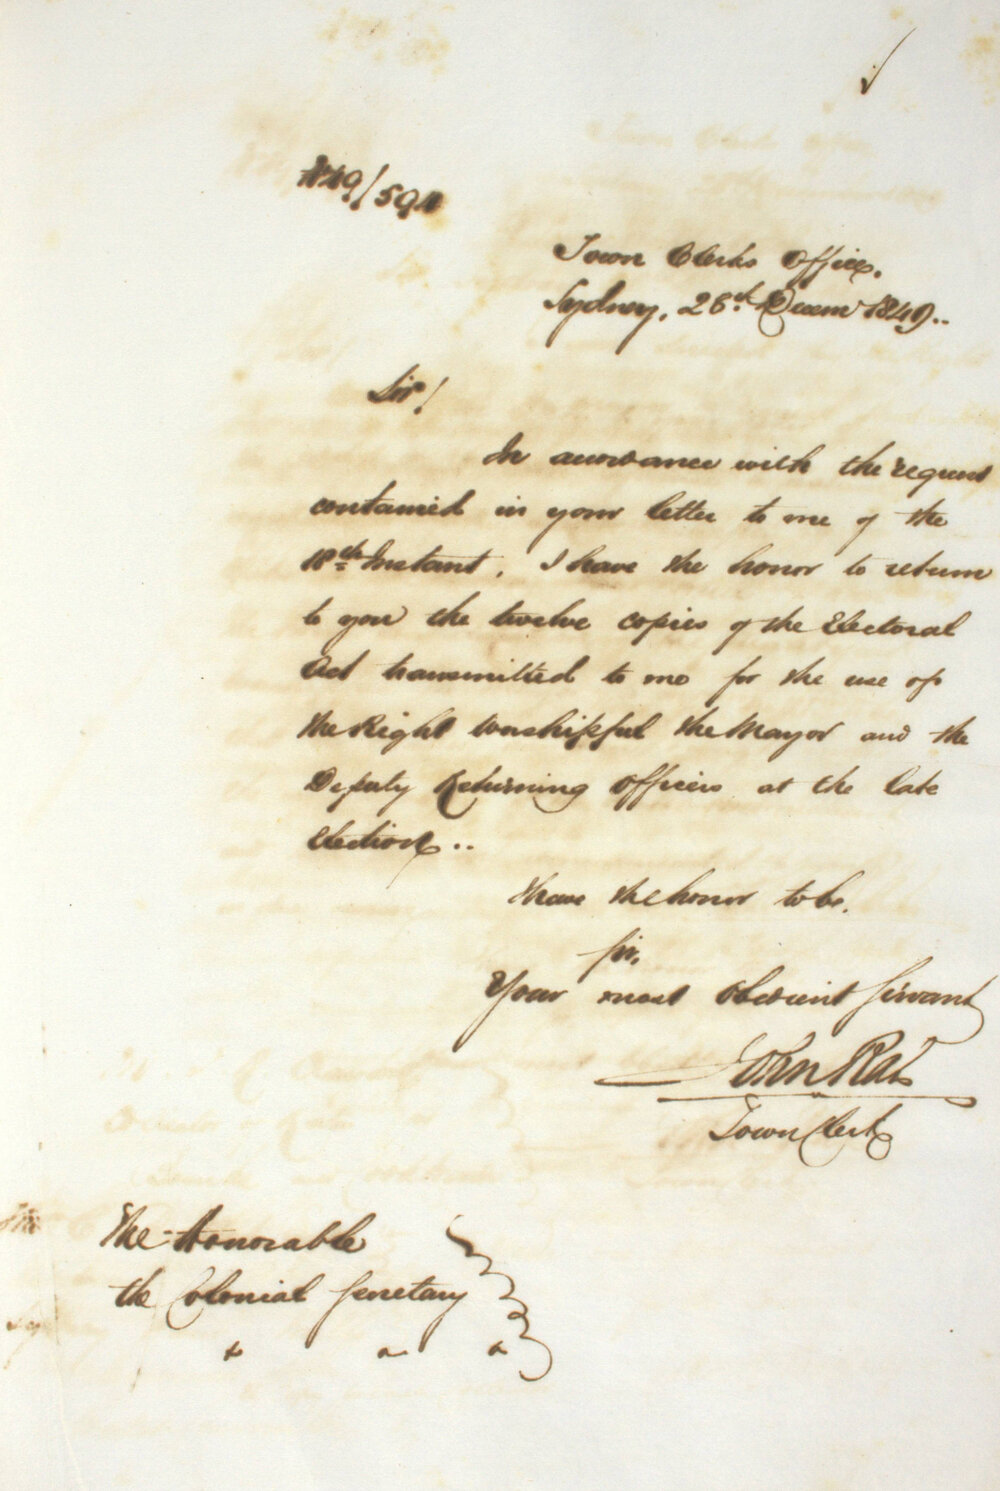 N° 49/594
Town Clerks Office,
Sydney, 28th Decemr 1849..
Sir!
In accordance with the request
contained in your letter to me of the
18th Instant, I have the honor to return
to you the twelve copies of the Electoral
Act transmitted to me for the use of
the Right Worshipful the Mayor and the
Deputy Returning Officers at the late
Election..
I have the honor to be,
Sir,
Your most obedient Servant
John Rae
Town Clerk
The Honorable
the Colonial Secretary